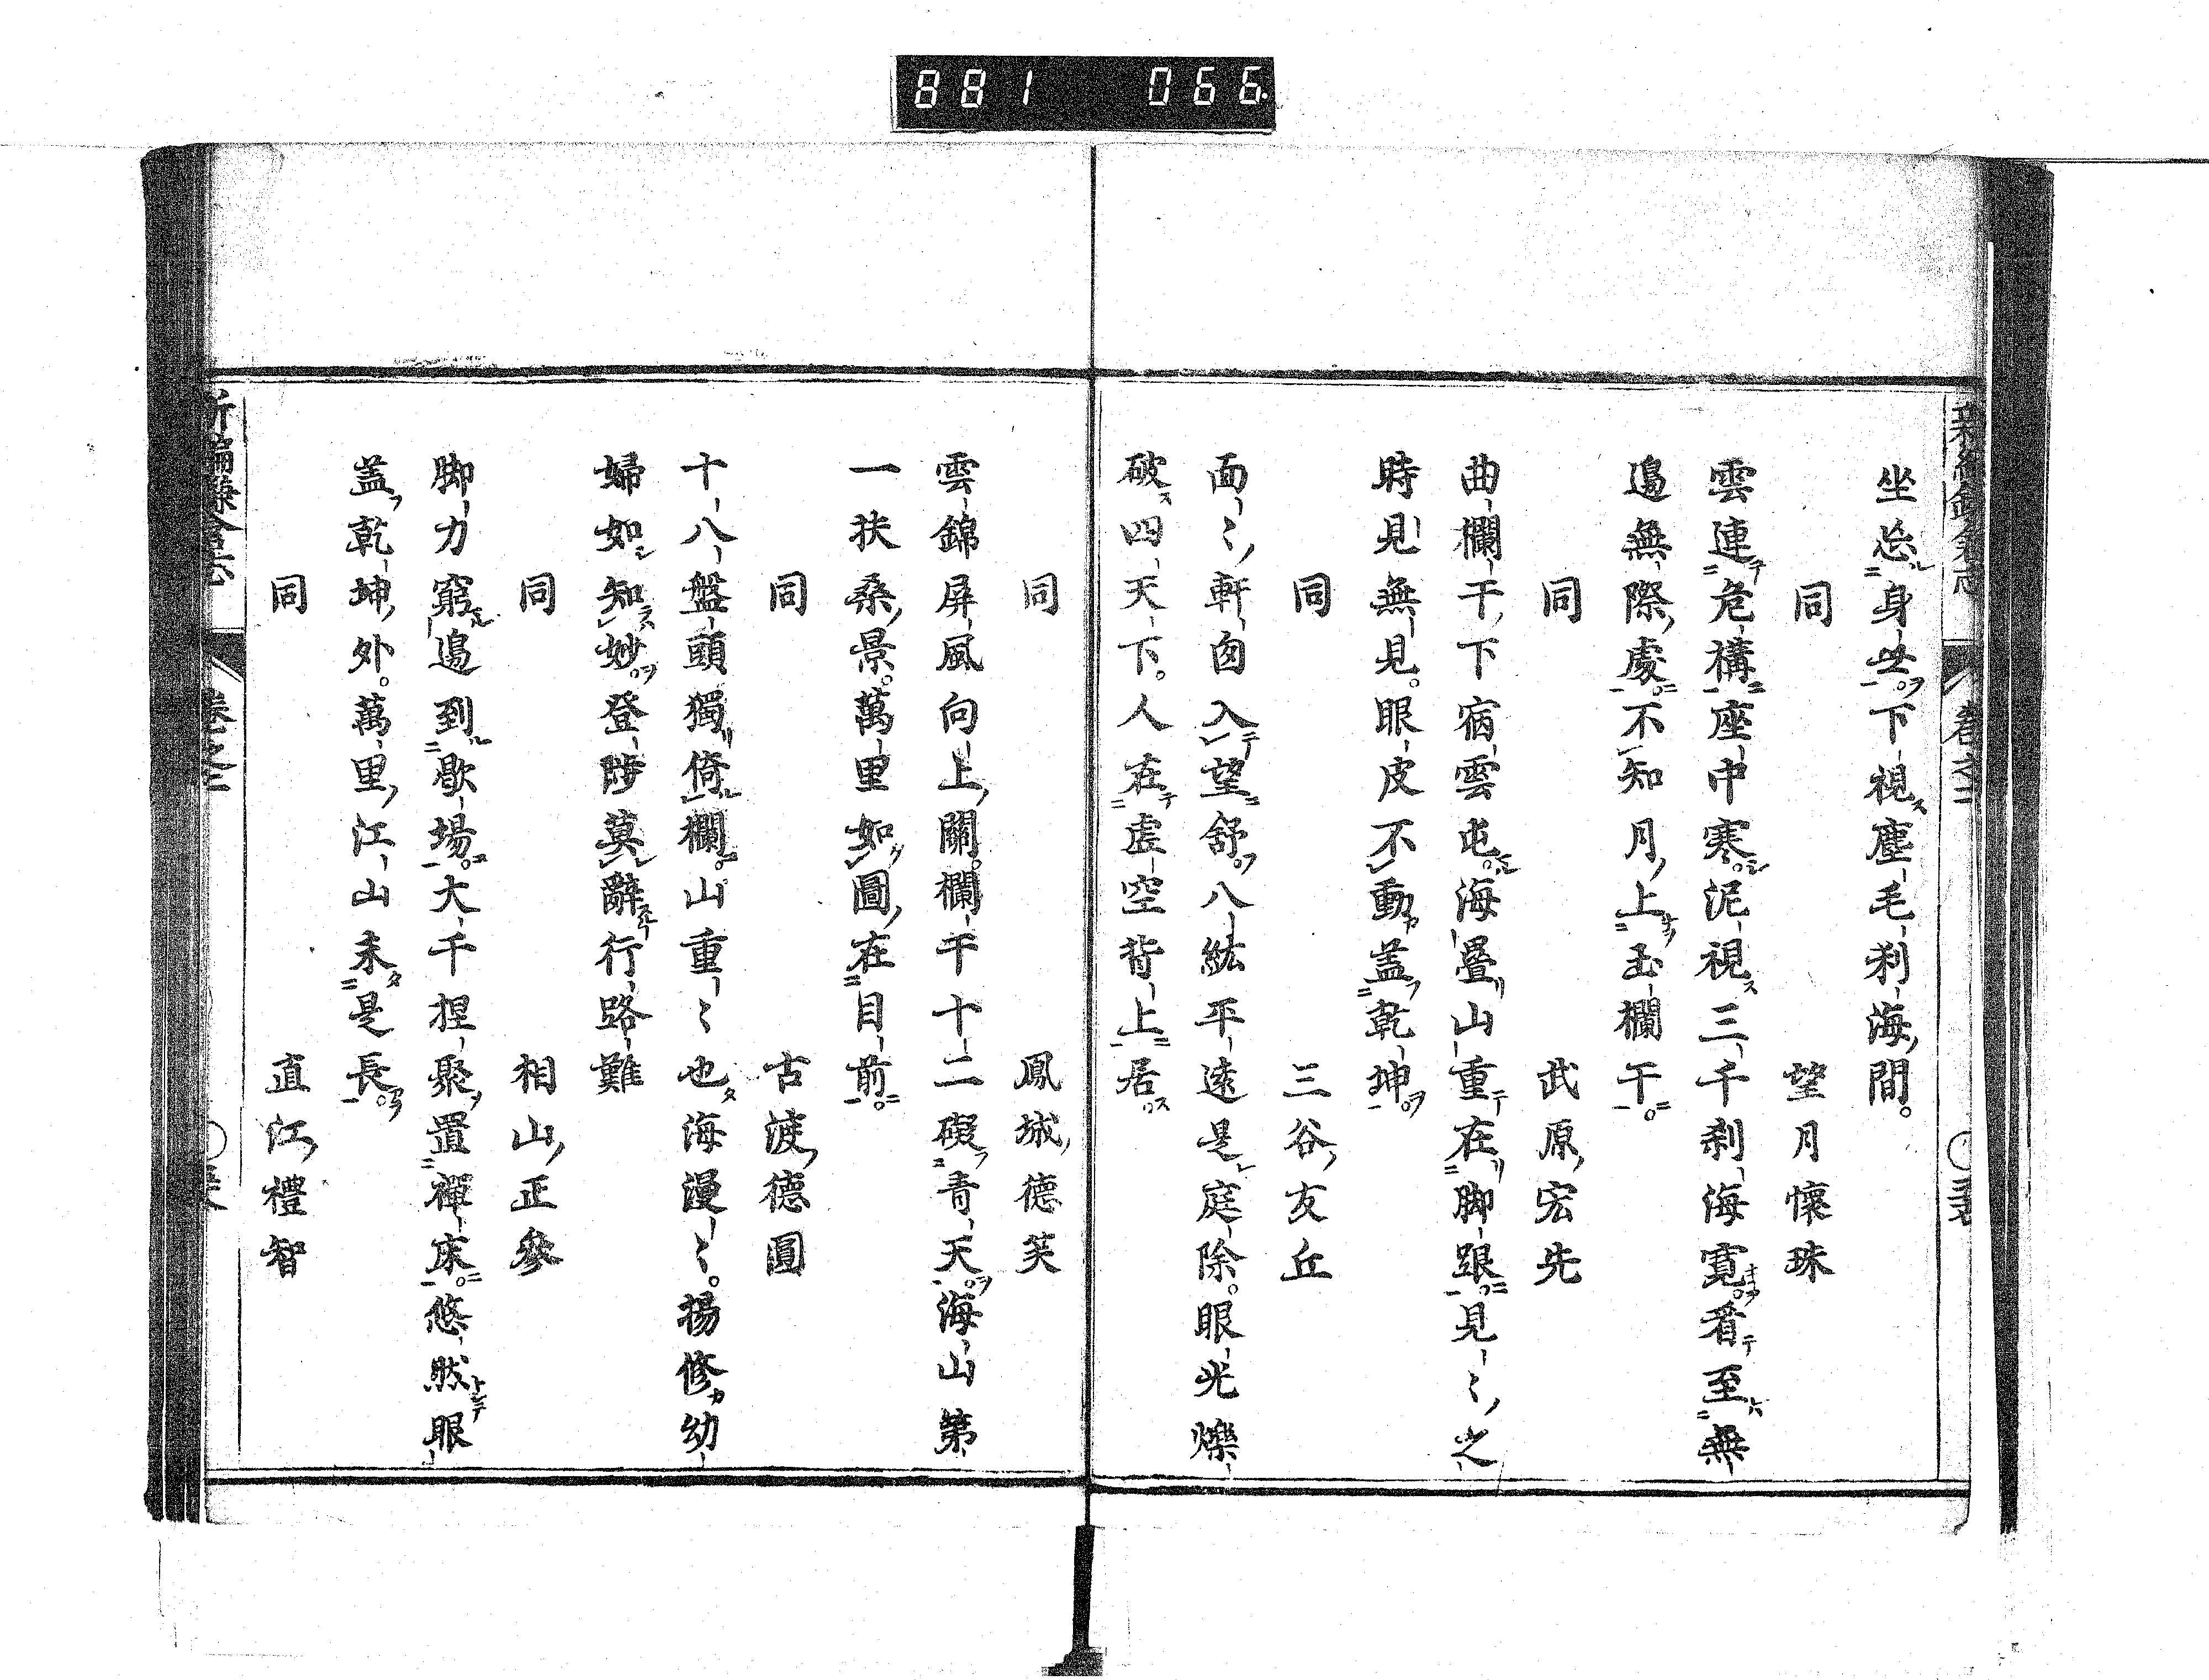 881 066
坐忘身世。下視塵毛刹海間。
同 望月懷珠
雲連危構座中寒。泥視三千刹海寬。看至無
邊無際處。不知月上玉欄干。
同 武原宏先
曲欄干下宿雲屯。海疊山重在脚跟。見〻之
時見無見。眼皮不動蓋乾坤。
同 三谷友丘
面〻軒囱入望舒。八紘平遠是庭除。眼光爍
破四天下。人在虚空背上居。
同 鳳城德笑
雲錦屏風向上關。欄干十二礙青天。海山第
一扶桑景。萬里如圖在目前。
同 古渡德圓
十八盤頭獨倚欄。山重〻也海漫〻。揚修幼
婦如知妙。登陟莫辭行路難
同 相山正參
脚力窮邊到歇場。大千捏聚置禪床。悠然眼
盖乾坤外。萬里江山未是長。
同 直江禮智
卷之二